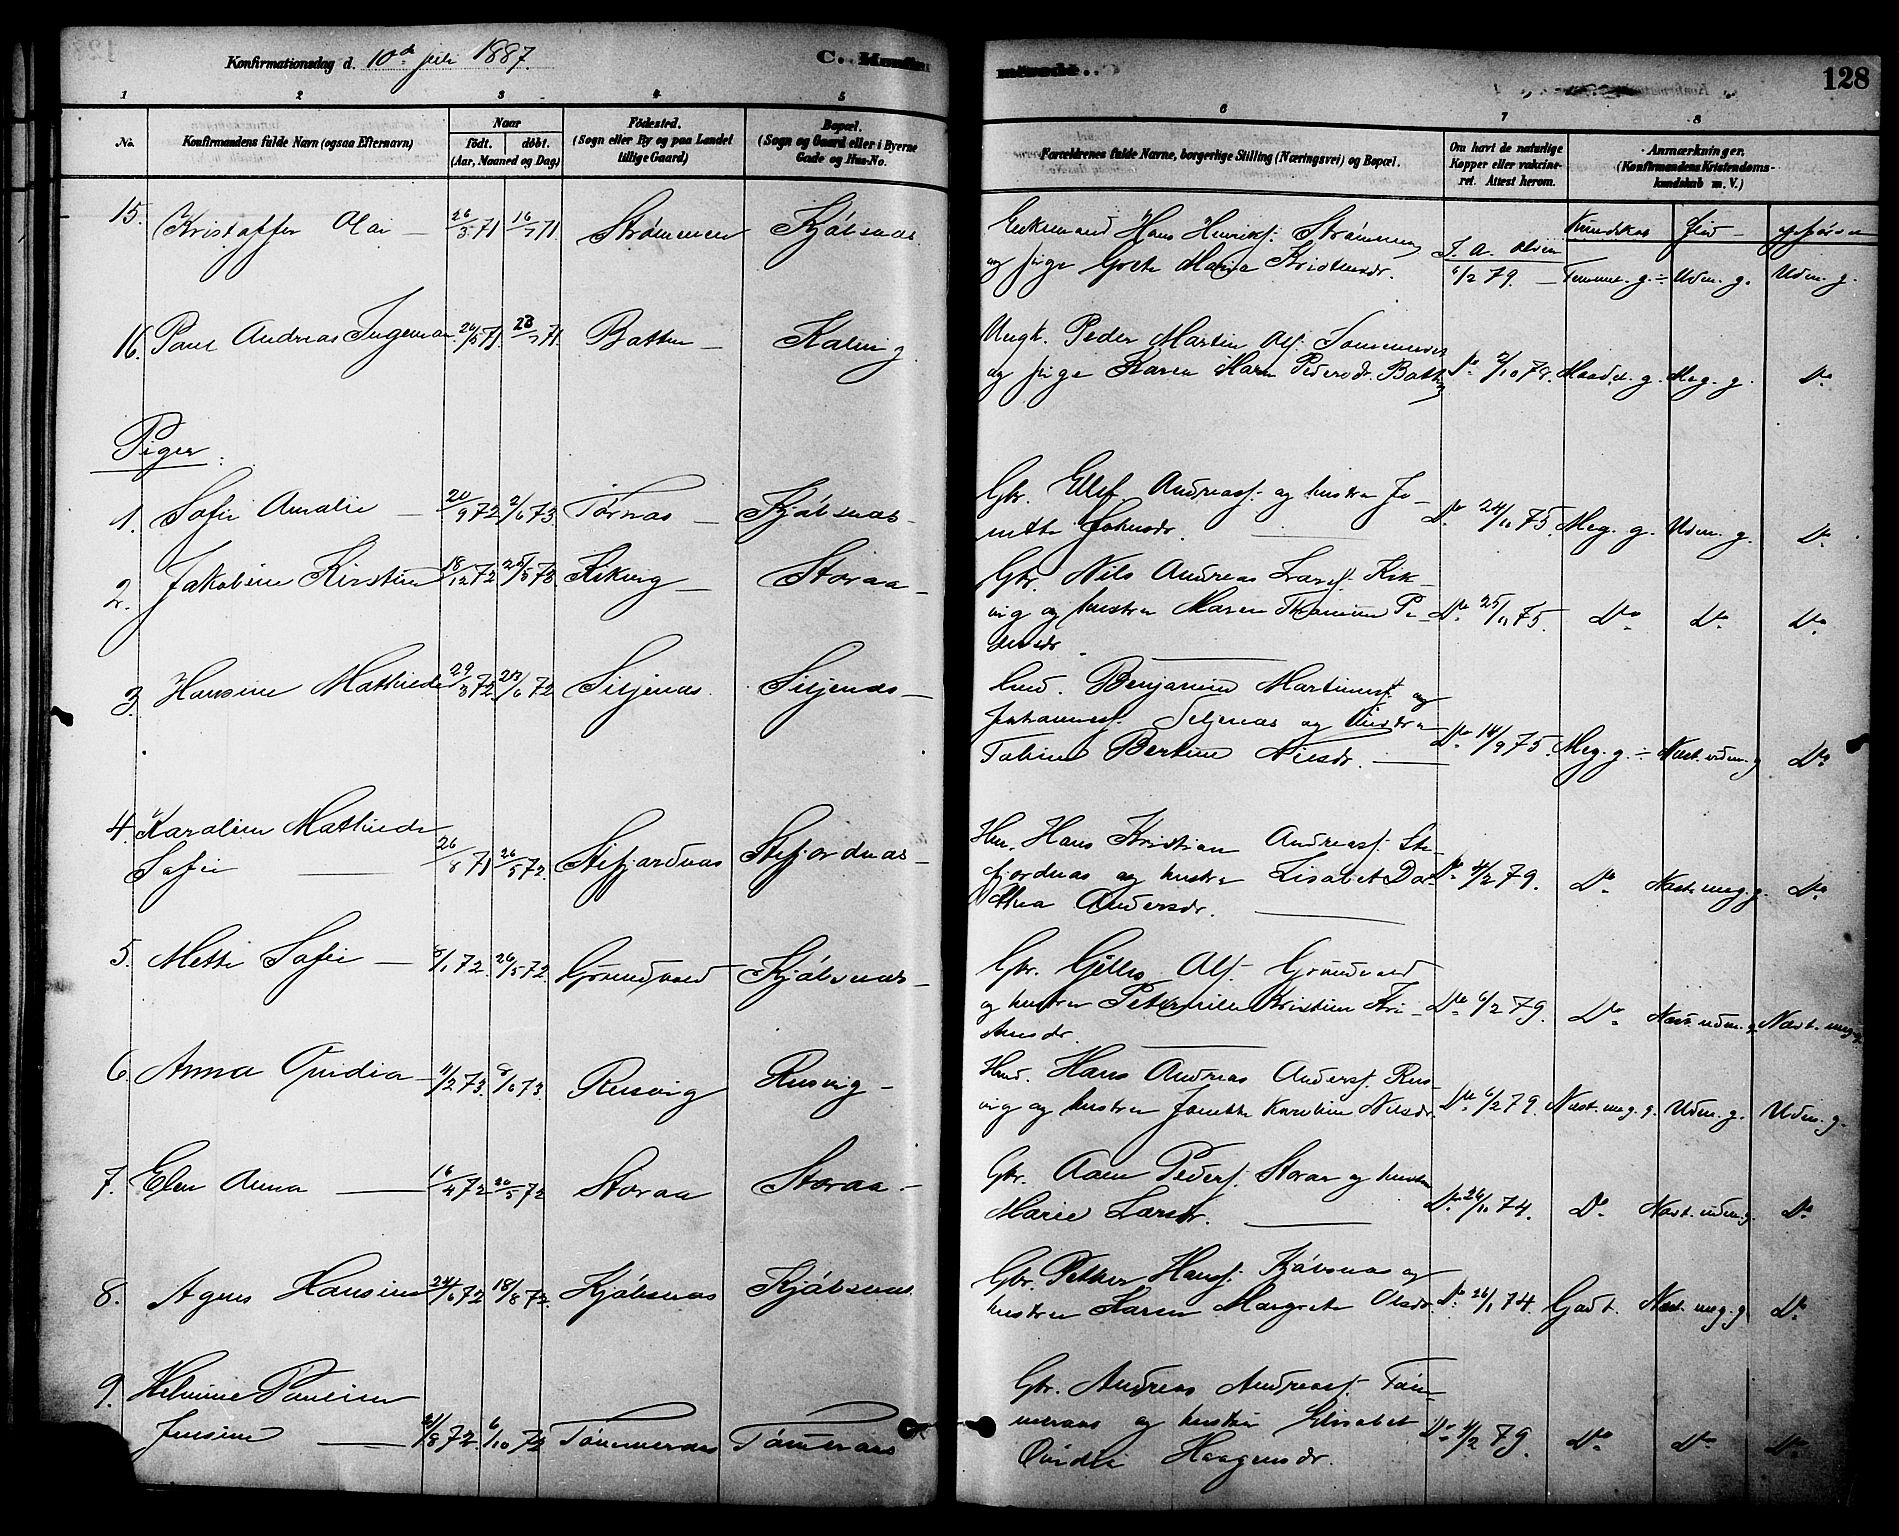 Konfirmationsdag d. 10de juli 1887.
C. Konfir
merede
128
1 2 3 4 5 6 7 8
No.
Konfirmandens fulde Navn (ogsaa Efternavn)
Naar
født. døbt.
(Aar, Maaned og Dag)
Fødested.
(Sogn eller By og paa Landet
tillige Gaard)
Bopæl.
(Sogn og Gaard eller i Byerne
Gade og Hus-No.
Forældrenes fulde Navne, borgerlige Stilling (Næringsvei) og Bopæl.
Om havt de naturlige
Kopper eller vakcine-
ret. Attest herom.
Anmærkninger.
(Konfirmandens Kristendoms-
kundskab m. V.)
Kundskab Flid
15. Kristoffer Olai — 26/5 71 16/7 71 Strømmen Kjøbsnæs
Enkemand Hans Henriks. Strømmen
og pige Grete Maria Kristensdr.
J. A. Olsen
6/2 79. Temmel. g. ÷ Udm. g. Udm. g.
16. Paul Andreas Ingeman 26/5 71. 23/7 71 Botten — Kalvig
Ungk. Peder Martin Ols. Sommerset
og pige Karen Maria Pedersdr. Botten
Do 78. Maadel. g. Meg. g. Do
Piger.
1. Sofie Amalie — 20/9 72 2/6 73 Tørnæs — Kjøbsnæs —
Gbr. Ellef Andreass. og hustru Jo-
nette Johnsdr.
Do 24/11 75. Meg. g. Udm. g. Do
2. Jakobine Kirstine 18/12 72 25/5 73 Kikvig — Storaa —
Gbr. Nils Andreas Larss. Kik-
vig og hustru Maren Pe-
dersdr.
Do 25/11 75. Do Do Do
3. Hansine Mathilde 29/3 72 23/6 72 Siljenæs. Siljenæs —
Hmd. Benjamin Martinus og
Johanness. Seljenæs og hustru
Bertine Nilsdr.
Do 14/9 75. Meg. g. ÷ Næst. udm. g Do
4. Karoline Mathilde
Sofie — 26/8 71 26/5 72. Stefjordnæs Stefjordnæs —
Hm. Hans Kristian Andreass. Ste-
fjordnæs og hustru Lisabet Do-
rthea Andersdr.
Do 4/2 79. Do Næst. meg. g. Do
5. Mette Sofie — 8/1 72. 26/5 72. Grundvold — Kjøbsnæs —
Gbr. Ols. Grundvold
og hustru Peternille Kristine Kri-
stensdr.
Do 6/2 79. Do Næst. udm. g. Næst. meg. g.
6. Anna Ovidia — 11/2 73. 8/6 73. Rusvig Rusvig —
Hmd. Hans Andreas Anders. Rus-
vig og hustru Jonette Karoline Nilsdr.
Do 6/2 79. Næst. meg. g. Udm. g. Udm. g.
7. Elen Anna — 16/4 72 20/5 72 Storaa Storaa —
Gbr. Peders. Storaa og hustru
Marie Larsdr.
Do 26/11 74. Do Næst. udm. g. Do
8. Agnes Hansine 24/6 72 18/8 72. Kjøbsnæs Kjøbsnæs
Gbr. Petter Hanss. Kjøbsnæs og
hustru Karen Margrete Olsdr.
Do 26/1 74. Godt. Næst. meg. g. Do
9. Helmine Pauline
Jensine — 21/8 72. 6/10 72 Tømmeraas Tømmeraas
Gbr. Andreas Andreass. Tøm-
meraas og hustru Elisabet
Ovidia Haagensdr.
Do 4/2 79. Do Do Do
Piger.